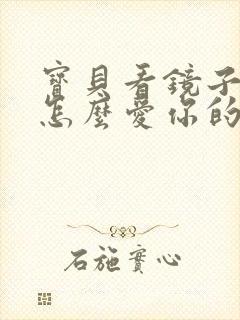 寶貝看鏡子
怎麼愛你的
石施實心